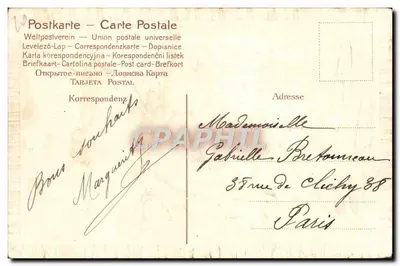 Postkarte — Carte Postale
Weltpostverein — Union postale universelle
Levelező-Lap — Correspondenzkarte — Dopisnice
Karta korespondencyjna — Korespondenční lístek
Briefkaart - Cartolina postale - Post card - Brefkort
Открытое письмо — Дописна Карта
Tarjeta Postal
Korrespondenz
Adresse
Bons souhaits
Marguerite
Mademoiselle
Gabrielle Bretonneau
35 rue de Clichy 38
Paris